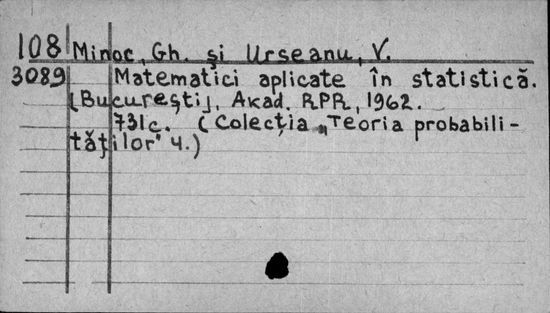 108 Minoc, Gh. și Urseanu, V.
3089 Matematici aplicate în statistică.
[București], Akad. RPR, 1962.
731c. (Colecția „Teoria probabili-
tăților" 4.)